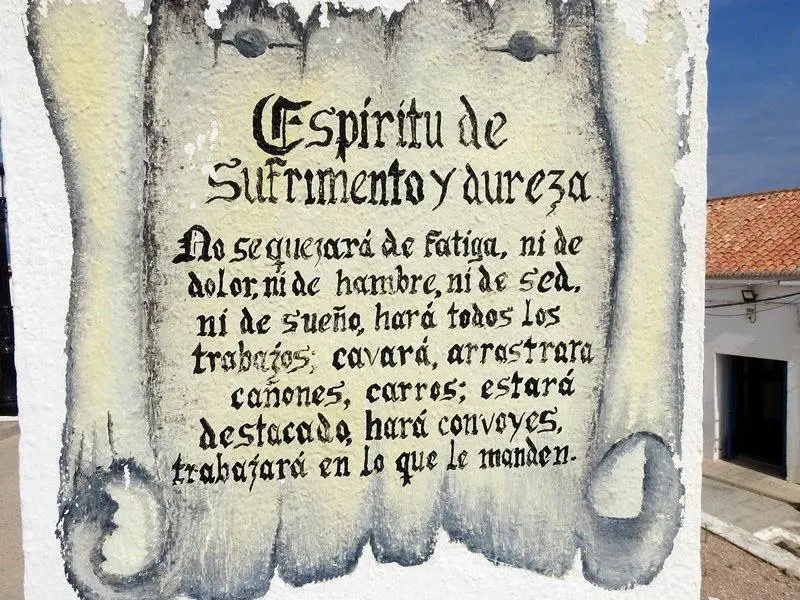 Espíritu de
Sufrimento y dureza
No se quejará de fatiga, ni de
dolor, ni de hambre, ni de sed,
ni de sueño, hará todos los
trabajos; cavará, arrastrara
cañones, carros; estará
destacado, hará convoyes,
trabajará en lo que le manden.